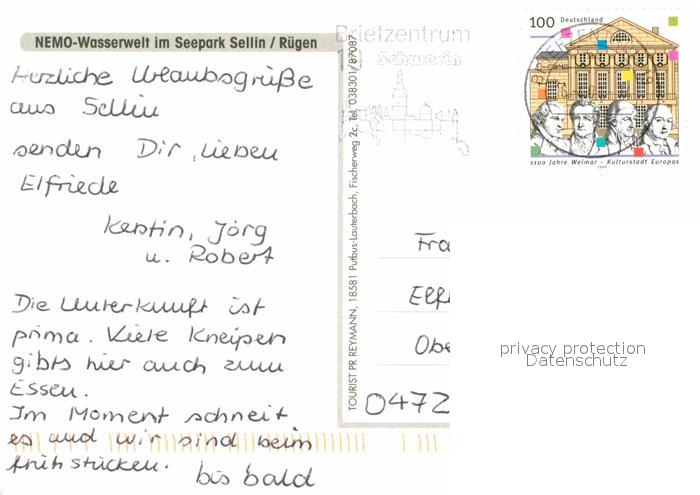 NEMO-Wasserwelt im Seepark Sellin / Rügen
Herzliche Urlaubsgrüße
aus Sellin
senden Dir, lieben
Elfriede
Kerstin, Jörg
u. Robert
Die Unterkunft ist
prima. Viele Kneipen
gibts hier auch zum
Essen.
Im Moment schneit
es und wir sind beim
frühstücken.
bis bald
TOURIST PR REYMANN, 18581 Putbus-Lauterbach, Fischerweg 2c, Tel. 038301/87087
Briefzentrum
Schwerin
100 Deutschland
1100 Jahre Weimar - Kulturstadt Europas
1999
Fra
Elf
Obe
0472
privacy protection
Datenschutz